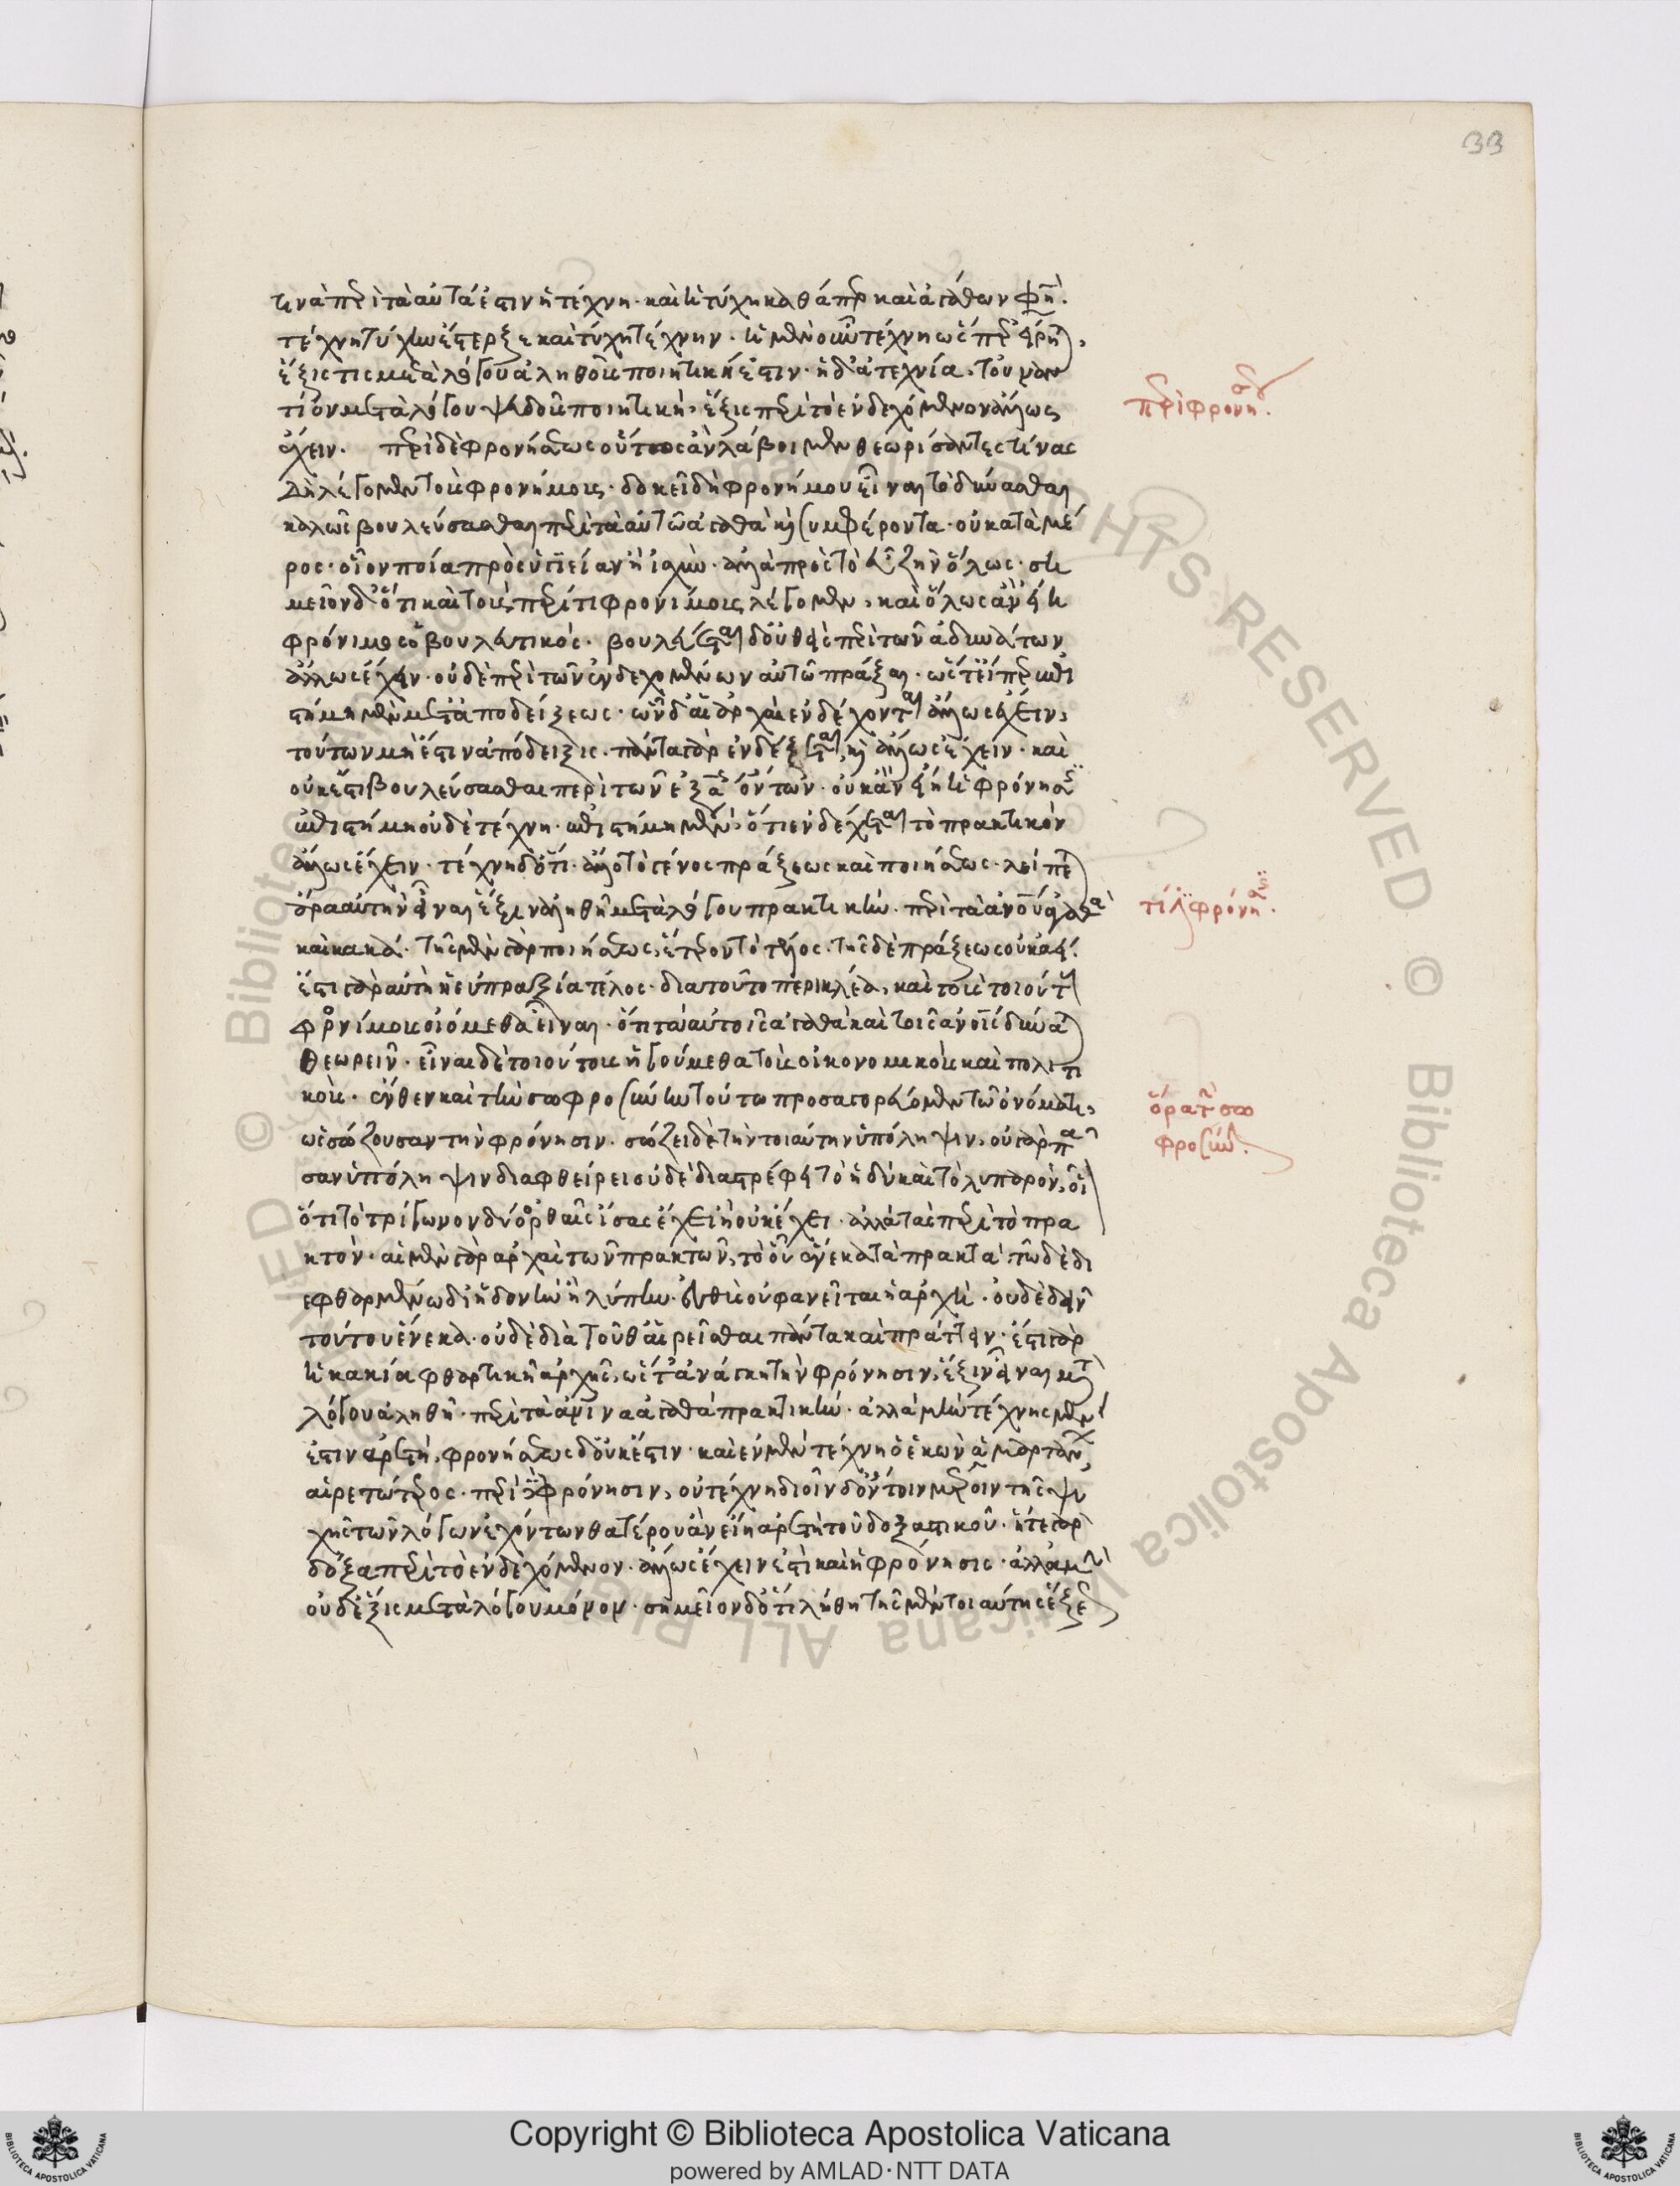 33
τινα περὶ τὰ αὐτά ἐστιν ἡ τέχνη· καὶ ἡ τύχη καθάπερ καὶ ἀγάθων φησὶ·
τέχνη τύχην ἔστερξε καὶ τύχη τέχνην· ἡ μὲν οὖν τέχνη ὥσπερ εἴρηται,
ἕξις τις μετὰ λόγου ἀληθοῦς ποιητική ἐστιν· ἡ δ' ἀτεχνία τοὐναν
τίον μετὰ λόγου ψευδοῦς ποιητικὴ ἕξις περὶ τὸ ἐνδεχόμενον ἄλλως
ἔχειν· περὶ δὲ φρονήσεως οὕτως ἂν λάβοιμεν θεωρήσαντες τίνας
λέγομεν τοὺς φρονήμους· δοκεῖ δὴ φρονήμου εἶναι τὸ δύνασθαι
καλῶς βουλεύσασθαι περὶ τὰ αὑτῶ ἀγαθὰ καὶ συμφέροντα· οὐ κατὰ μέ
ρος· οἷον ποία πρὸς ὑγιείαν ἢ ἰσχὺν· ἀλλὰ πρὸς τὸ εὖ ζῆν ὅλως· ση
μεῖον δ' ὅτι καὶ τοὺς περί τι φρονίμους λέγομεν, καὶ ὅλως ἂν εἴη
φρόνιμος ὁ βουλευτικός· βουλεύεται δ' οὐθεὶς περὶ τῶν ἀδυνάτων
ἄλλως ἔχειν· οὐδὲ περὶ τῶν ἐνδεχομένων αὐτῶ πρᾶξαι· ὥστ' εἴπερ ἐπι
στήμη μὲν μετὰ ἀποδείξεως· ὧν δ' αἱ ἀρχαὶ ἐνδέχονται ἄλλως ἔχειν,
τούτων μή ἐστιν ἀπόδειξις· πάντα γὰρ ἐνδέχεται καὶ ἄλλως ἔχειν· καὶ
οὐκ ἔστι βουλεύσασθαι περὶ τῶν ἐξ ἀνάγκης ὄντων· οὐκ ἂν εἴη ἡ φρόνησις
ἐπιστήμη οὐδὲ τέχνη· ἐπιστήμη μὲν ὅτι ἐνδέχεται τὸ πρακτικὸν
ἄλλως ἔχειν· τέχνη δ' ὅτι ἄλλο τὸ γένος πράξεως καὶ ποιήσεως· λείπεται
ἄρα αὐτὴν εἶναι ἕξιν ἀληθῆ μετὰ λόγου πρακτικὴν· περὶ τὰ ἀνθρώπῳ ἀγαθὰ
καὶ κακά· τῆς μὲν γὰρ ποιήσεως, ἕτερον τὸ τέλος· τῆς δὲ πράξεως οὐκ ἀεί·
ἔστι γὰρ αὐτὴ ἡ εὐπραξία τέλος· διατοῦτο περικλέα, καὶ τοὺς τοιούτους
φρονίμους οἰόμεθα εἶναι· ὅτι τὰ αὑτοῖς ἀγαθὰ καὶ τοῖς ἀνθρώποις δύνανται
θεωρεῖν· εἶναι δὲ τοιούτους ἡγούμεθα τοὺς οἰκονομικοὺς καὶ πολιτι
κοὺς· ἔνθεν καὶ τὴν σωφροσύνην τούτω προσαγορεύομεν τῶ ὀνόματι,
ὡς σώζουσαν τὴν φρόνησιν· σώζει δὲ τὴν τοιαύτην ὑπόληψιν, οὐ γὰρ πᾶ
σαν ὑπόληψιν διαφθείρει οὐδὲ διαστρέφει τὸ ἡδὺ καὶ τὸ λυπηρόν, οἷον
ὅτι τὸ τρίγωνον δύο ὀρθαῖς ἴσας ἔχει ἢ οὐκ ἔχει· ἀλλὰ τὰς περὶ τὸ πρα
κτὸν· αἱ μὲν γὰρ ἀρχαὶ τῶν πρακτῶν, τὸ οὗ ἕνεκα τὰ πρακτὰ· τῶ δὲ δι
εφθαρμένω δι' ἡδονὴν ἢ λύπην· εὐθὺς οὐ φανεῖται ἡ ἀρχὴ· οὐδὲ δεῖν
τούτου ἕνεκα· οὐδὲ διὰ τοῦθ' αἱρεῖσθαι πάντα καὶ πράττειν· ἔστι γὰρ
ἡ κακία φθαρτικὴ ἀρχῆς, ὥστ' ἀνάγκη τὴν φρόνησιν, ἕξιν εἶναι μετὰ
λόγου ἀληθῆ· περὶ τὰ ἀνθρώπινα ἀγαθὰ πρακτικὴν· ἀλλὰ μὴν τέχνης μὲν
ἐστιν ἀρετὴ, φρονήσεως δ' οὐκ ἔστιν· καὶ ἐν μὲν τέχνη ὁ ἑκὼν ἁμαρτάνων
αἱρετώτερος· περὶ δὲ φρόνησιν, οὐ τέχνη δυοῖν δ' ὄντοιν μεροῖν τῆς ψυ
χῆς τῶν λόγων ἐχόντων θατέρου ἂν εἴη ἀρετὴ τοῦ δοξαστικοῦ· ἥ τε γὰρ
δόξα περὶ τὸ ἐνδεχόμενον· ἄλλως ἔχειν ἐστὶ καὶ ἡ φρόνησις· ἀλλὰ μὴν
οὐδ' ἕξις μετὰ λόγου μόνον· σημεῖον δ' ὅτι λήθη τῆς μὲν τοιαύτης ἕξεως
περὶ φρονήσεως·
τί ἐστι φρόνησις·
ὅρα τὴν σω
φροσύνην·
Copyright © Biblioteca Apostolica Vaticana
powered by AMLAD·NTT DATA